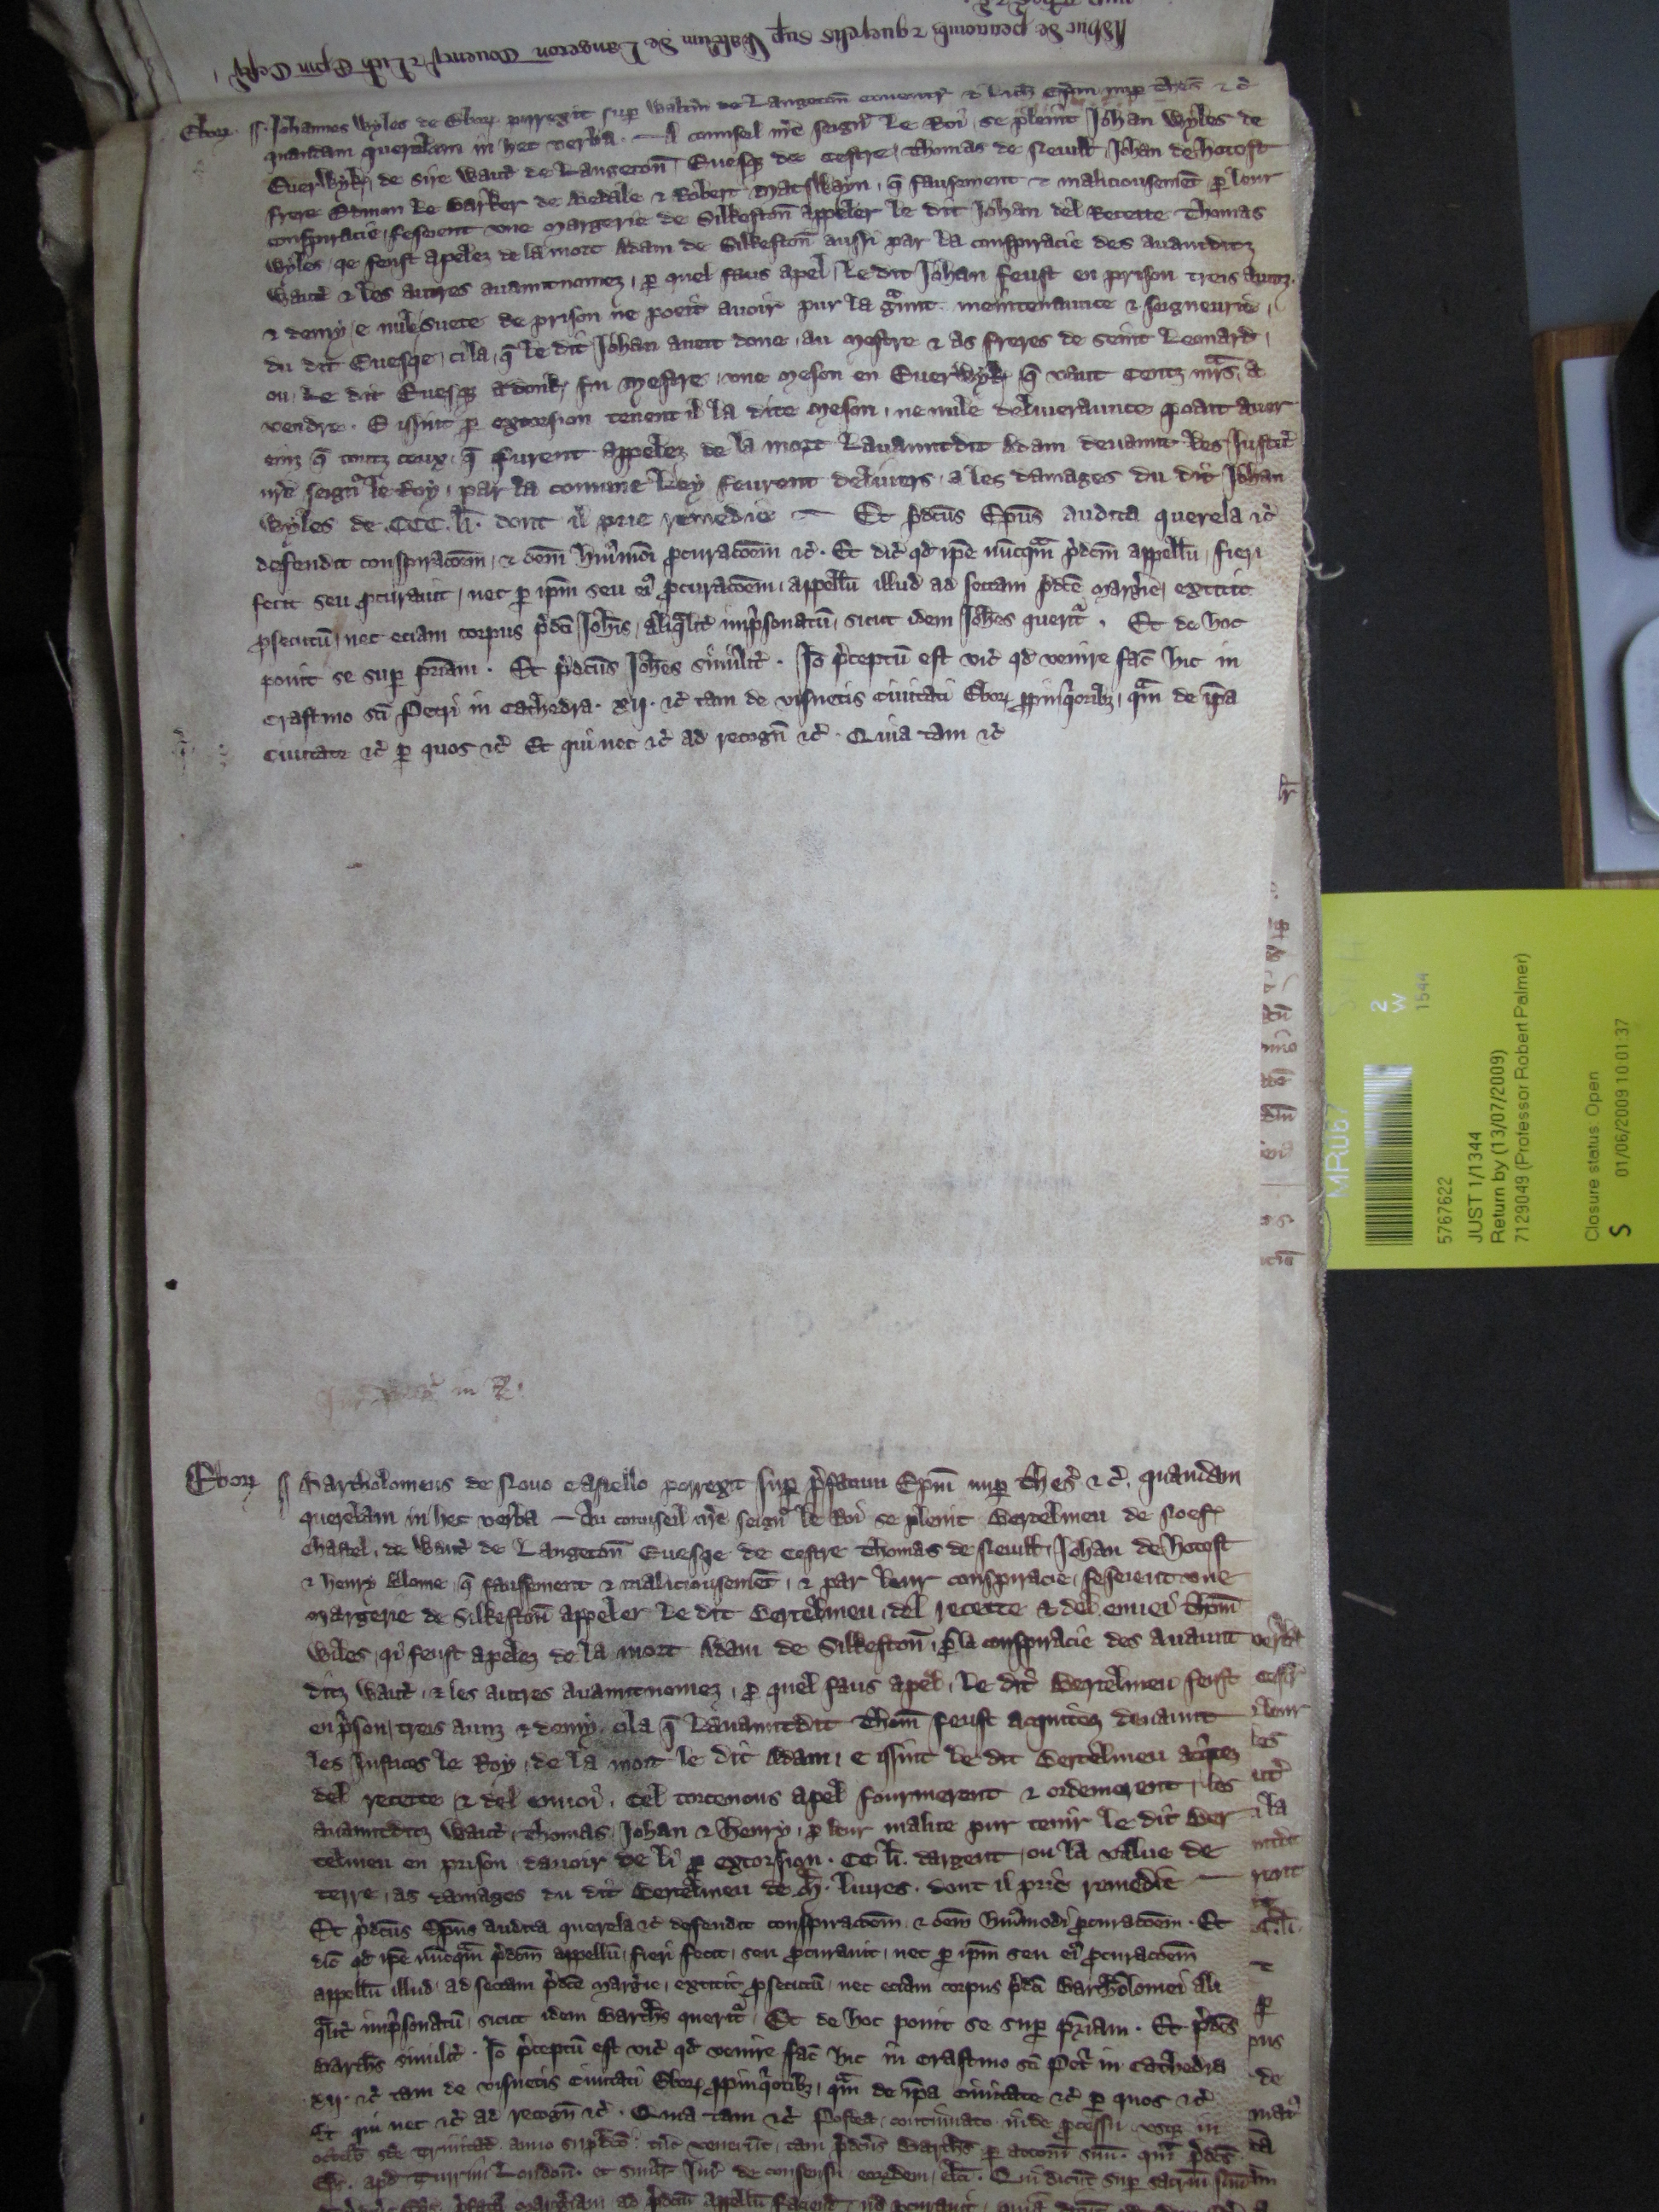 Adhuc de peticonib; & querelis sup Walterum de Langeton Couentr & Lich Epm Cestr
Ebor Johannes Wyles de Ebor porrexit sup Waltm de Langeton Couentr & Lich Epm nup Thes & c̄
quandam querelam in hec verba. A counseil nr̄e seignr̄ le Roi, se pleint Johan Wyles de
Euerwyk, de sire Waut̄ de Langeton, Euesq; de Cestre, Thomas de Neuill, Johan de hotoft
frere Edmon le Barker de Bedale & Robert Matswayn, q̄ fausement & maliciousemēt p leur
conspiracie, feseient vne Margerie de Silkestoñ appeler le dit Johan del Recette Thomas
Wyles, qe feust apelez de la mort Adam de Silkestoñ aussi par la conspiracie des auauntditz
Waut̄ & les autres auauntnomez, p quel faus apel, le dit Johan feust en prison treis aunz
& demy, e nule suete de prison ne poeit auoir pur la gr̄unt meintenaunce & seigneurie,
du dit Euesqe, cila, q̄ le dit Johan aueit done, au Mestre & as freres de seint Leonard,
ou, le dit Euesq; adonk, fu Mestre, vne Meson en Euerwyk, q̄ vaut Centz mr̄s, a
vendre. E issint p extorsion tenent il la dite Meson, ne nule deliueraunce poait auer
einz q̄ toutz ceux, q̄ furent appelez de la mort lauauntdit Adam deuaunt les Justic̄
nr̄e seignr̄ le Roy, par la comune Ley feurent deliuers, a les damages du dit Johan
Wyles de CCC. li. dont il prie remedie — Et p̄dcūs Ep̄us audita querela &c̄
defendit conspiracōm, & oēm huj̄mōi pcuracōem &c̄. Et dic̄ qd ip̄e nūcqm̄ p̄dcm̄ appellū, fieri
fecit seu pcurauit, nec p ip̄m seu ei pcuracōem, appellū illud ad sectam p̄dcē Margie, extitit
psecutū, nec eciam corpus p̄dc̄i Joh̄is, aliq̄lit̄ imp̄sonatū, sicut idem Joh̄es querit̄. Et de hoc
ponit se sup p̄riam. Et p̄dcūs Joh̄es similit̄. Iō p̄ceptū est vic̄ qd venire fac̄ hic in
Crastino sc̄i Petri in Cathedra. xij. &c̄ tam de visnetis Ciuitati Ebor ppinq̄oribz, qm̄ de ip̄a
Ciuitate &c̄ p quos &c̄ Et qui nec &c̄ ad recogn̄ &c̄. Quia tam &c̄
Ebor Bartholomeus de Nouo Castello porrexit sup p̄fatum Ep̄m nup Thes & c̄. quandam
querelam in hec verba — Au counseil nr̄e seignr̄ le Roi se pleint Bertelmeu de Noef
Chastel, de Waut̄ de Langetoñ Euesqe de Cestre Thomas de Neuill, Johan de hotoft
& henry Alome, q̄ fausement & maliciousemēt, & par leur conspiracie, feseient vne
Margerie de Silkestoñ appeler le dit Bertelmeu, del recette & del enuei Thom̄
Wiles, qi feust apelez de la mort Adam de Silkestoñ, p la conspiracie des auaunt
ditz Waut̄, & les autres auauntnomez, p quel faus apel, le dit Bertelmeu feust
en p̄son, treis aunz & demy, cila q̄ lauauntdit Thom̄ feust acquitez deuaunt
les Justices le Roy, de la mort le dit Adam, e issint le dit Bertelmeu acq̄tez
del recette & del enuoi. Cel torcenous apel fourmerent & ordeinerent, les
auauntditz Waut̄, Thomas, Johan & henry, p leur malice pur tenir le dit Ber
telmeu en prison, dauoir de li p extorsion. CC li. dargent, ou la value de
terre, as damages du dit Bertelmeu de M̄. liures. dont il prie remedie —
Et p̄dcūs Ep̄us audita querela &c̄ defendit conspiracōem, & oēm huj̄modi pcuracōem. Et
dic̄ qd ip̄e nūcqm̄ p̄dcm̄ appellū, fieri fecit, seu pcurauit, nec p ip̄m seu ei pcuracōem
appellū illud, ad sectam p̄dcē Margie, extitit psecutū, nec eciam corpus p̄dc̄i Barthōlomei ali
q̄lit̄ imp̄sonatū, sicut idem Barth̄s querit̄, Et de hoc ponit se sup p̄riam. Et p̄dc̄s
Barth̄s similit̄. Iō p̄ceptū est vic̄ qd venire fac̄ hic in Crastino sc̄i Pet̄ in Cathedra
xij. &c̄ tam de visnetis Ciuitati Ebor ppinq̄oribz, qm̄ de ip̄a Ciuitate &c̄ p quos &c̄
Et qui nec &c̄ ad recogn̄ &c̄. Quia tam &c̄ Postea, continuato inde pcessu vsq; in
octab sc̄e Trinitat̄ anno sup̄dcō. tūc venerūt, tam p̄dcūs Barth̄s p attorn̄ suū. qm̄ p̄dc̄s
Ep̄c. apd Turrim London. et similit̄ Jur̄ de consensu eorzdem, elc̄i. Qui dicūt sup sacr̄m suū
MRu67
2
W
1544
5767622
JUST 1/1344
Return by (13/07/2009)
7129049 (Professor Robert Palmer)
Closure status Open
S 01/06/2009 10:01:37